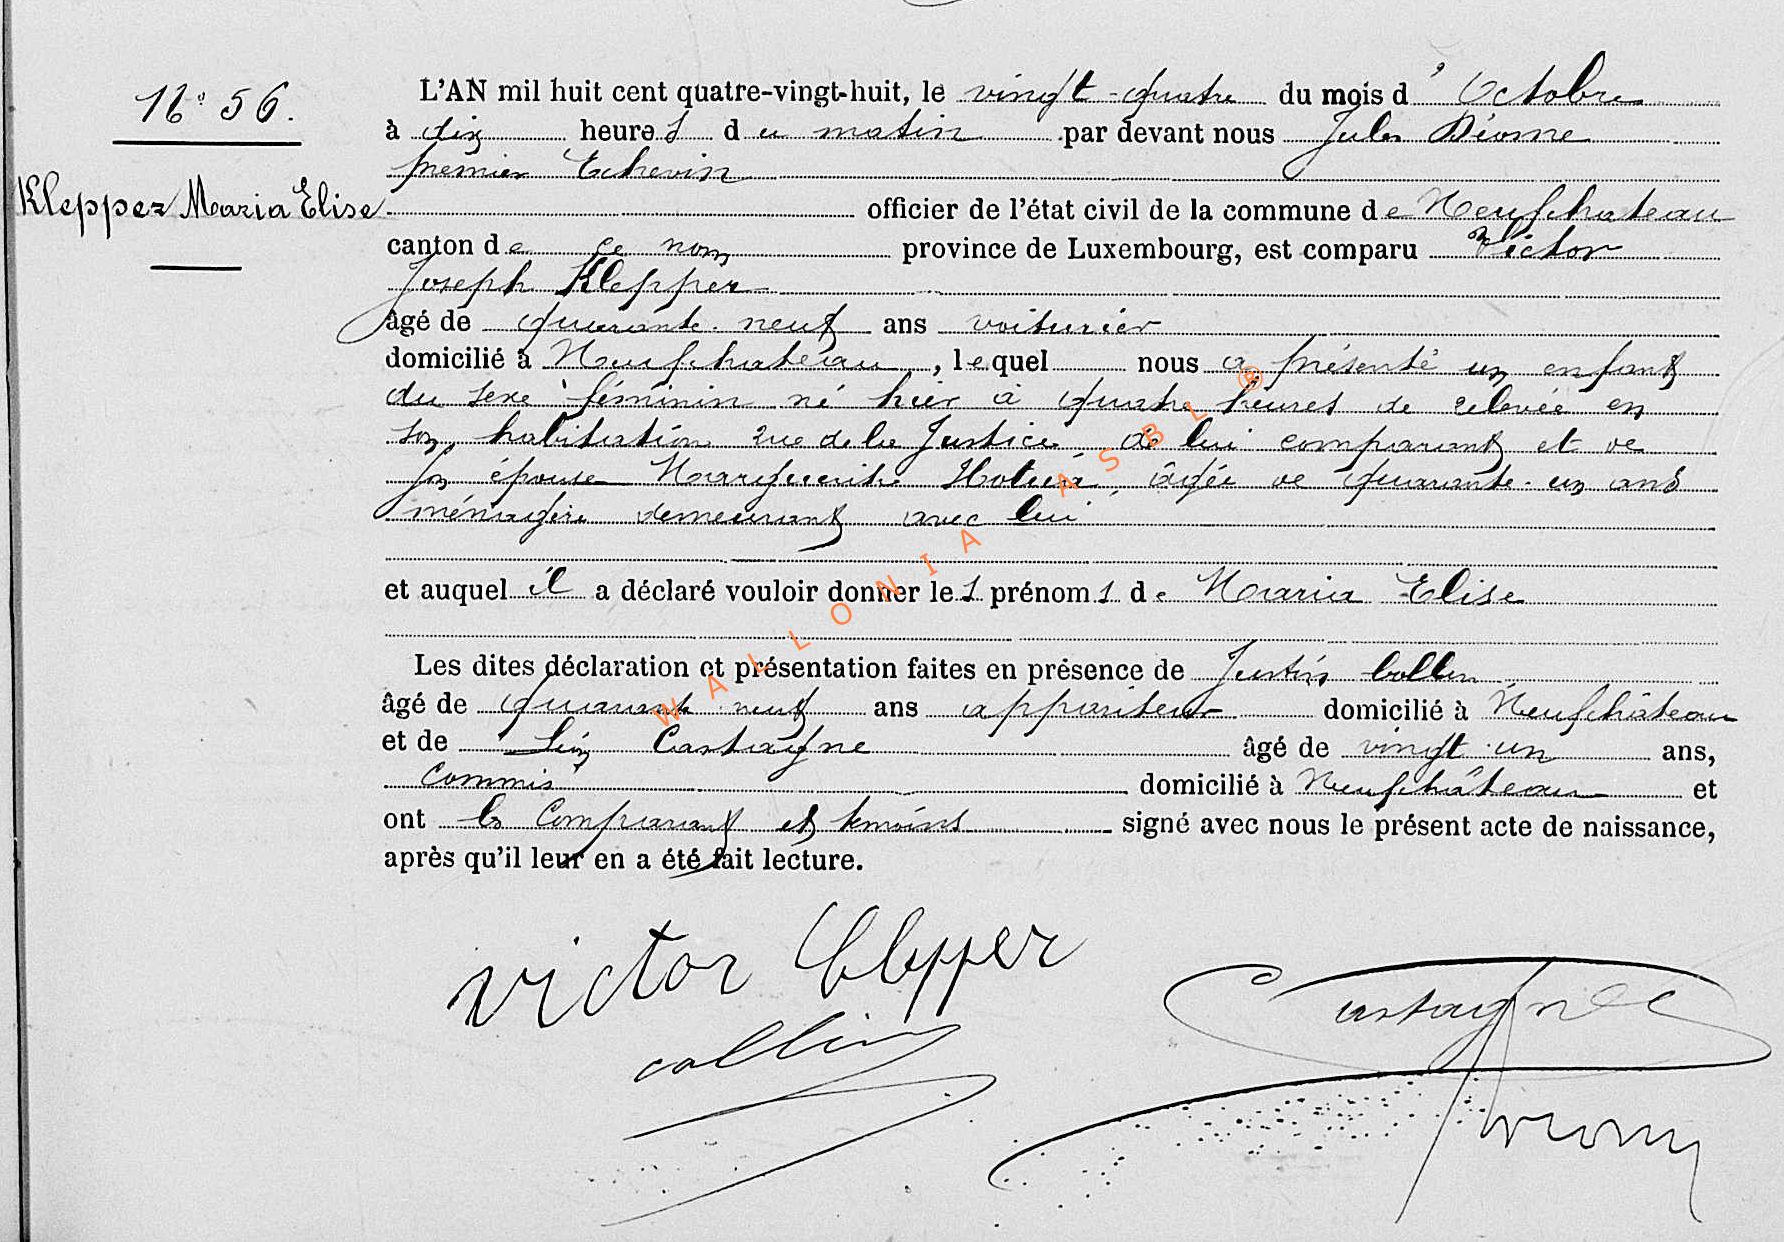 N° 56.
Klepper Maria Elise
L'AN mil huit cent quatre-vingt-huit, le vingt-quatre du mois d'Octobre
à dix heures du matin par devant nous Jules
premier Echevin
officier de l'état civil de la commune de Neufchateau
canton de ce nom province de Luxembourg, est comparu Victor
Joseph Klepper
âgé de quarante-neuf ans voiturier
domicilié à Neufchateau, lequel nous a présenté un enfant
du sexe féminin né hier à quatre heures de relevée en
son habitation rue de la Justice de lui comparant et de
son épouse Marguerite âgée de quarante-un ans
ménagère demeurant avec lui
et auquel il a déclaré vouloir donner les prénoms de Maria Elise
Les dites déclaration et présentation faites en présence de Justin Collin
âgé de quarante neuf ans appariteur domicilié à Neufchâteau
et de Léon Castagne âgé de vingt-un ans,
commis domicilié à Neufchâteau et
ont les Comparant et témoins signé avec nous le présent acte de naissance,
après qu'il leur en a été fait lecture.
Victor Clepper
Castagne
collin
WALLONIA ASBL ®